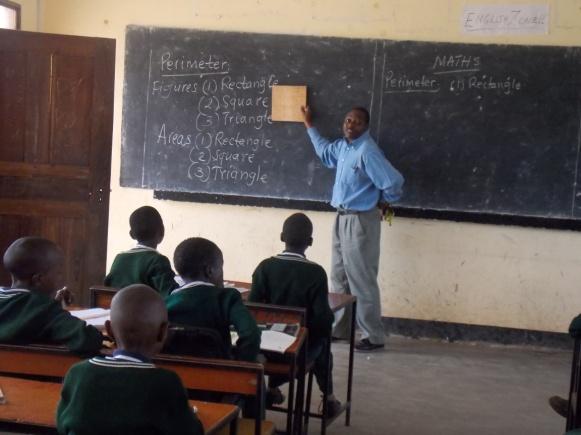 Perimeter
Figures (1) Rectangle
(2) Square
(3) Triangle
Areas (1) Rectangle
(2) Square
(3) Triangle
MATHS
Perimeter (1) Rectangle
ENGLISH ZONE